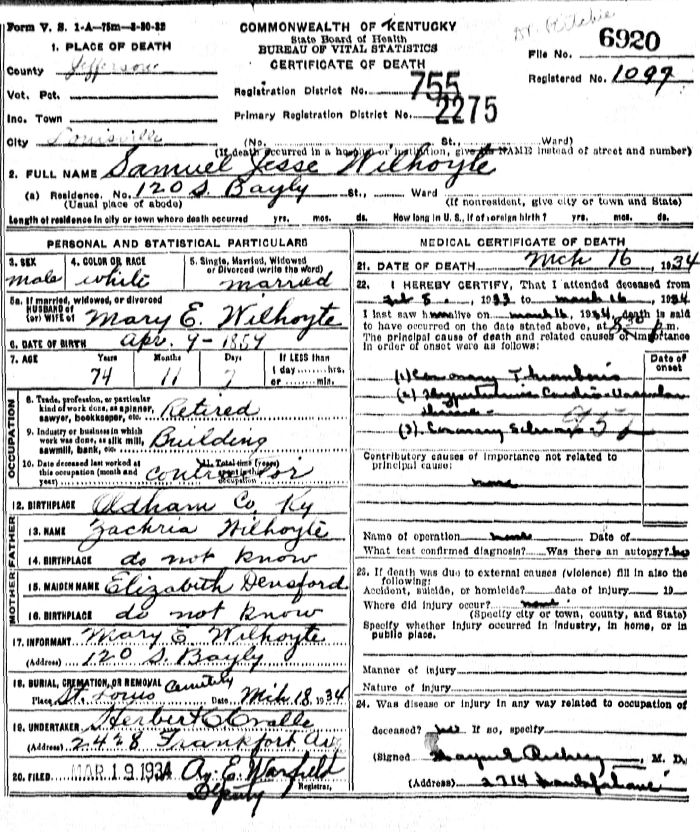 Form V. S. 1-A-75m-8-30-33
COMMONWEALTH OF KENTUCKY
State Board of Health
BUREAU OF VITAL STATISTICS
CERTIFICATE OF DEATH
Dr Ritchie
File No. 6920
Registered No. 1097
1. PLACE OF DEATH
County Jefferson
Vot. Pct.
Inc. Town
City Louisville
Registration District No. 755
Primary Registration District No. 2275
(No. St., Ward)
(If death occurred in a hospital or institution, give its NAME instead of street and number)
2. FULL NAME Samuel Jesse Wilhoyte
(a) Residence. No. 120 S Bayly St., Ward
(Usual place of abode) (If nonresident, give city or town and State)
Length of residence in city or town where death occurred yrs. mos. ds. How long in U. S., if of foreign birth? yrs. mos. ds.
PERSONAL AND STATISTICAL PARTICULARS
3. SEX male
4. COLOR OR RACE white
5. Single, Married, Widowed or Divorced (write the word) married
5a. If married, widowed, or divorced
HUSBAND of
(or) WIFE of Mary E. Wilhoyte
6. DATE OF BIRTH Apr. 9 - 1859
7. AGE Years Months Days If LESS than
74 11 7 1 day hrs.
or min.
OCCUPATION
8. Trade, profession, or particular kind of work done, as spinner, sawyer, bookkeeper, etc. Retired
9. Industry or business in which work was done, as silk mill, sawmill, bank, etc. Building
10. Date deceased last worked at this occupation (month and year)
11. Total time (years) spent in this occupation
contractor
12. BIRTHPLACE Oldham Co. Ky
FATHER
13. NAME Zachria Wilhoyte
14. BIRTHPLACE do not know
MOTHER
15. MAIDEN NAME Elizabeth Densford
16. BIRTHPLACE do not know
17. INFORMANT Mary E. Wilhoyte
(Address) 120 S. Bayly
18. BURIAL, CREMATION, OR REMOVAL
Place St. Louis Cemetery Date Mch 18, 1934
19. UNDERTAKER Herbert Cralle
(Address) 2428 Frankfort Av
20. FILED MAR 19 1934 A. E. Warfield
Registrar.
Deputy
MEDICAL CERTIFICATE OF DEATH
21. DATE OF DEATH Mch 16, 1934
22. I HEREBY CERTIFY, That I attended deceased from
1933 to March 16, 1934
I last saw him alive on March 16, 1934, death is said
to have occurred on the date stated above, at 8:30 P.m.
The principal cause of death and related causes of importance
in order of onset were as follows:
Date of onset
(1) Coronary Thrombosis
(2) Hypertensive Cardio-Vascular
disease
(3) Coronary Sclerosis
Contributory causes of importance not related to
principal cause:
none
Name of operation none Date of
What test confirmed diagnosis? Was there an autopsy? no
23. If death was due to external causes (violence) fill in also the
following:
Accident, suicide, or homicide? date of injury 19
Where did injury occur? none
(Specify city or town, county, and State)
Specify whether injury occurred in industry, in home, or in
public place.
Manner of injury
Nature of injury
24. Was disease or injury in any way related to occupation of
deceased? If so, specify
(Signed M. D.
(Address) 2714